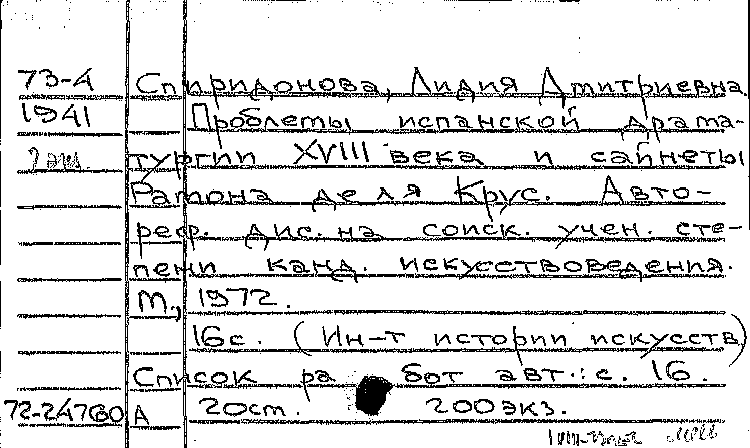 73-4 Спиридонова, Лидия Дмитриевна.
1941 Проблемы испанской драма-
2 экз. тургии XVIII века и сайнеты
Рамона де ля Крус. Авто-
реф. дис. на соиск. учен. сте-
пени канд. искусствоведения.
М., 1972.
16с. (Ин-т истории искусств)
Список работ авт.: с. 16.
72-24760 А 20см. 200экз.